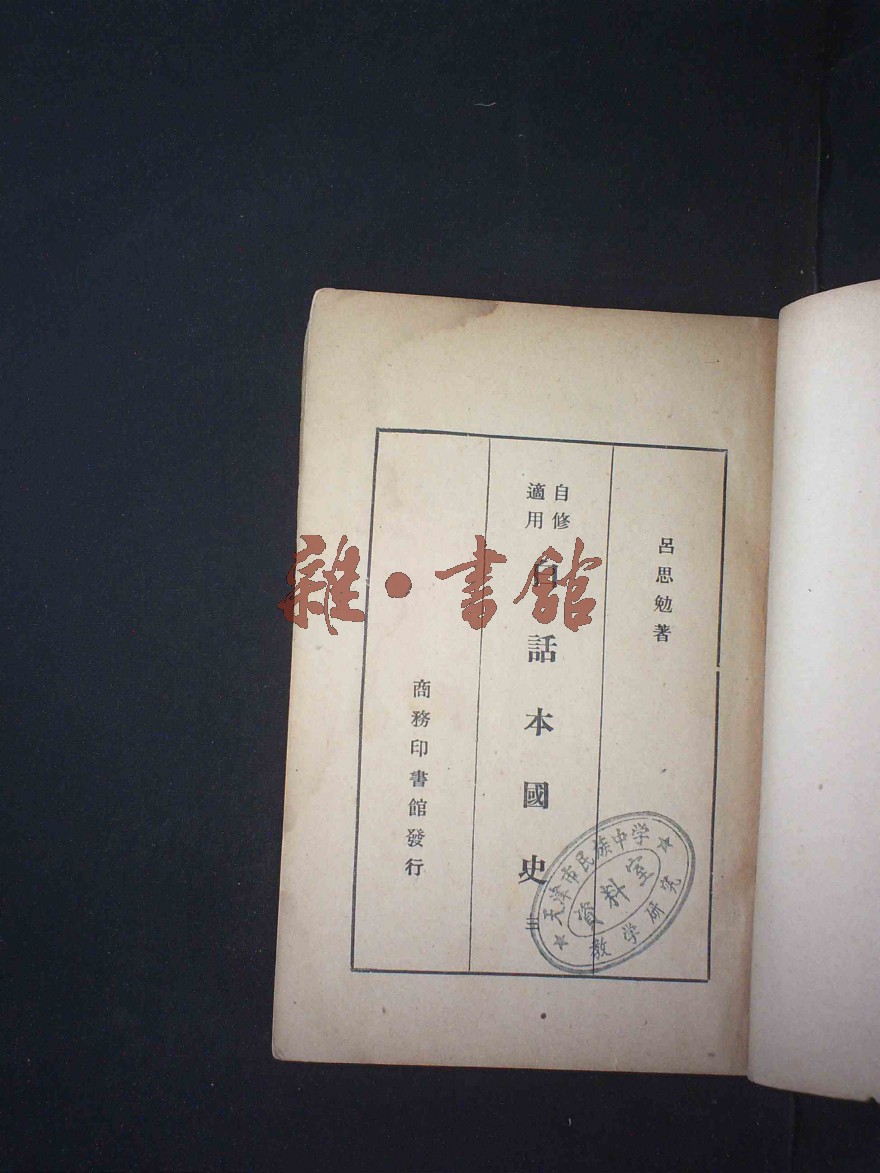 呂思勉著
自修
適用
白話本國史
三
商務印書館發行
天津市民族中学
資料室
教学研究
雜·書館